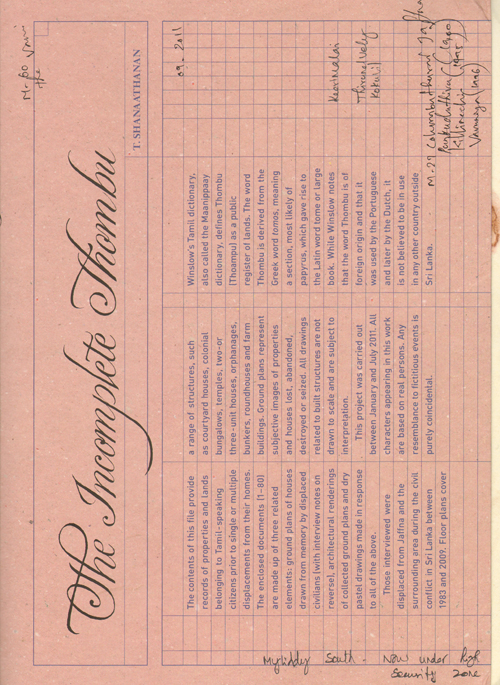 The Incomplete Thombu
T. SHANAATHANAN
The contents of this file provide
records of properties and lands
belonging to Tamil-speaking
citizens prior to single or multiple
displacements from their homes.
The enclosed documents (1-80)
are made up of three related
elements: ground plans of houses
drawn from memory by displaced
civilians (with interview notes on
reverse), architectural renderings
of collected ground plans and dry
pastel drawings made in response
to all of the above.
Those interviewed were
displaced from Jaffna and the
surrounding area during the civil
conflict in Sri Lanka between
1983 and 2009. Floor plans cover
a range of structures, such
as courtyard houses, colonial
bungalows, temples, two-or
three-unit houses, orphanages,
bunkers, roundhouses and farm
buildings. Ground plans represent
subjective images of properties
and houses lost, abandoned,
destroyed or seized. All drawings
related to built structures are not
drawn to scale and are subject to
interpretation.
This project was carried out
between January and July 2011. All
characters appearing in this work
are based on real persons. Any
resemblance to fictitious events is
purely coincidental.
Winslow's Tamil dictionary,
also called the Maanippaay
dictionary, defines Thombu
(Thoampu) as a public
register of lands. The word
Thombu is derived from the
Greek word tomos, meaning
a section, most likely of
papyrus, which gave rise to
the Latin word tome or large
book. While Winslow notes
that the word Thombu is of
foreign origin and that it
was used by the Portuguese
and later by the Dutch, it
is not believed to be in use
in any other country outside
Sri Lanka.
09-2011
Kokuvil
Jaffna
South. Now under High
Security Zone